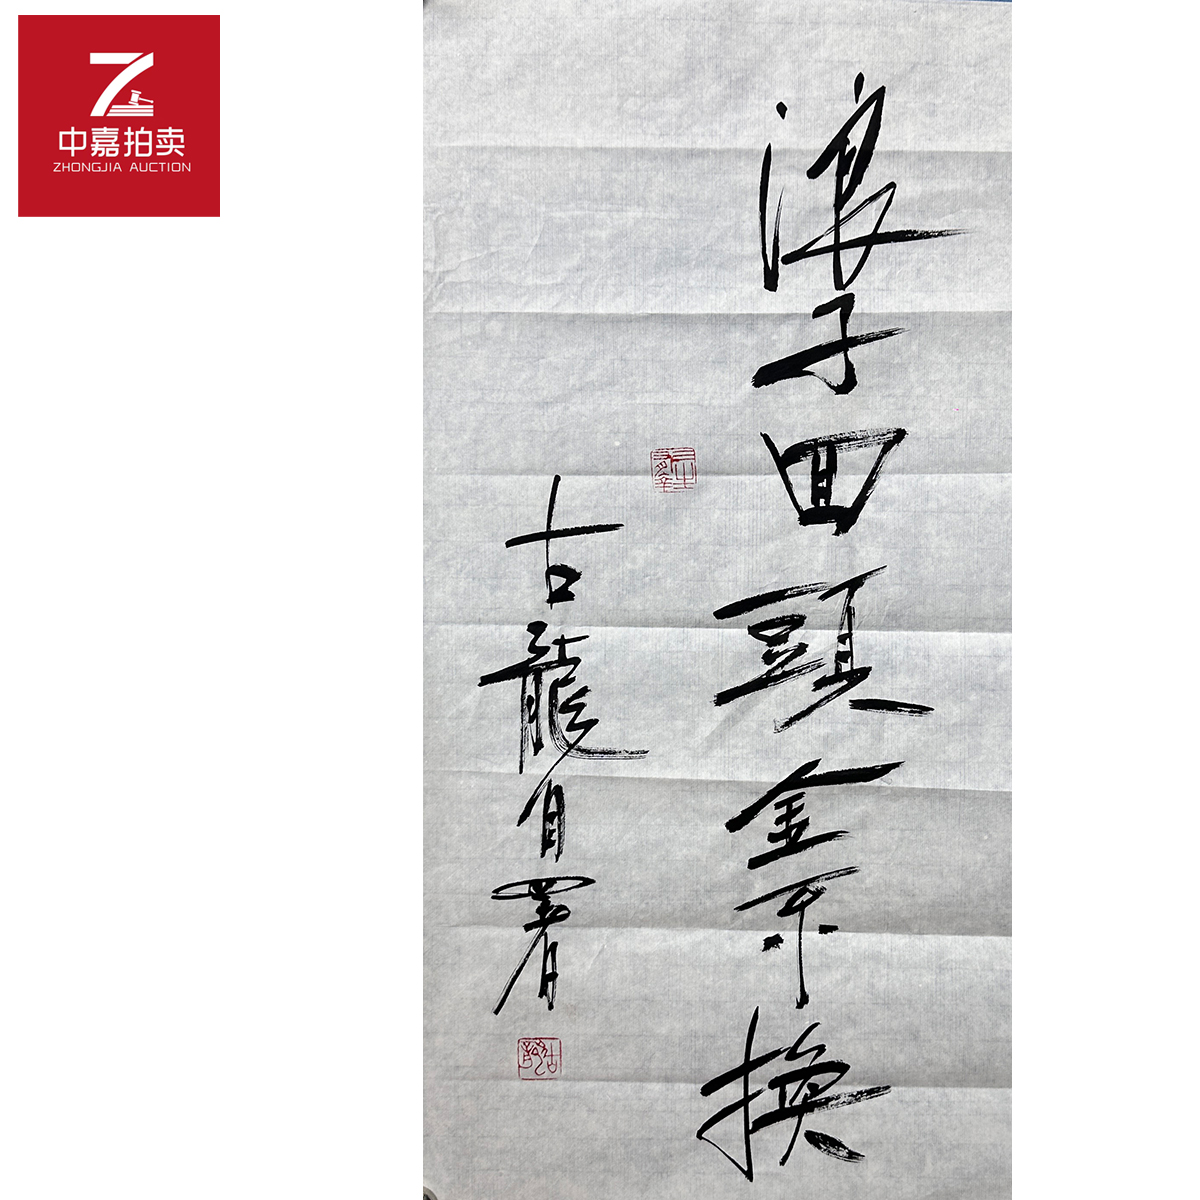 中嘉拍卖
ZHONGJIA AUCTION
浪子回頭金不換
古龍自署